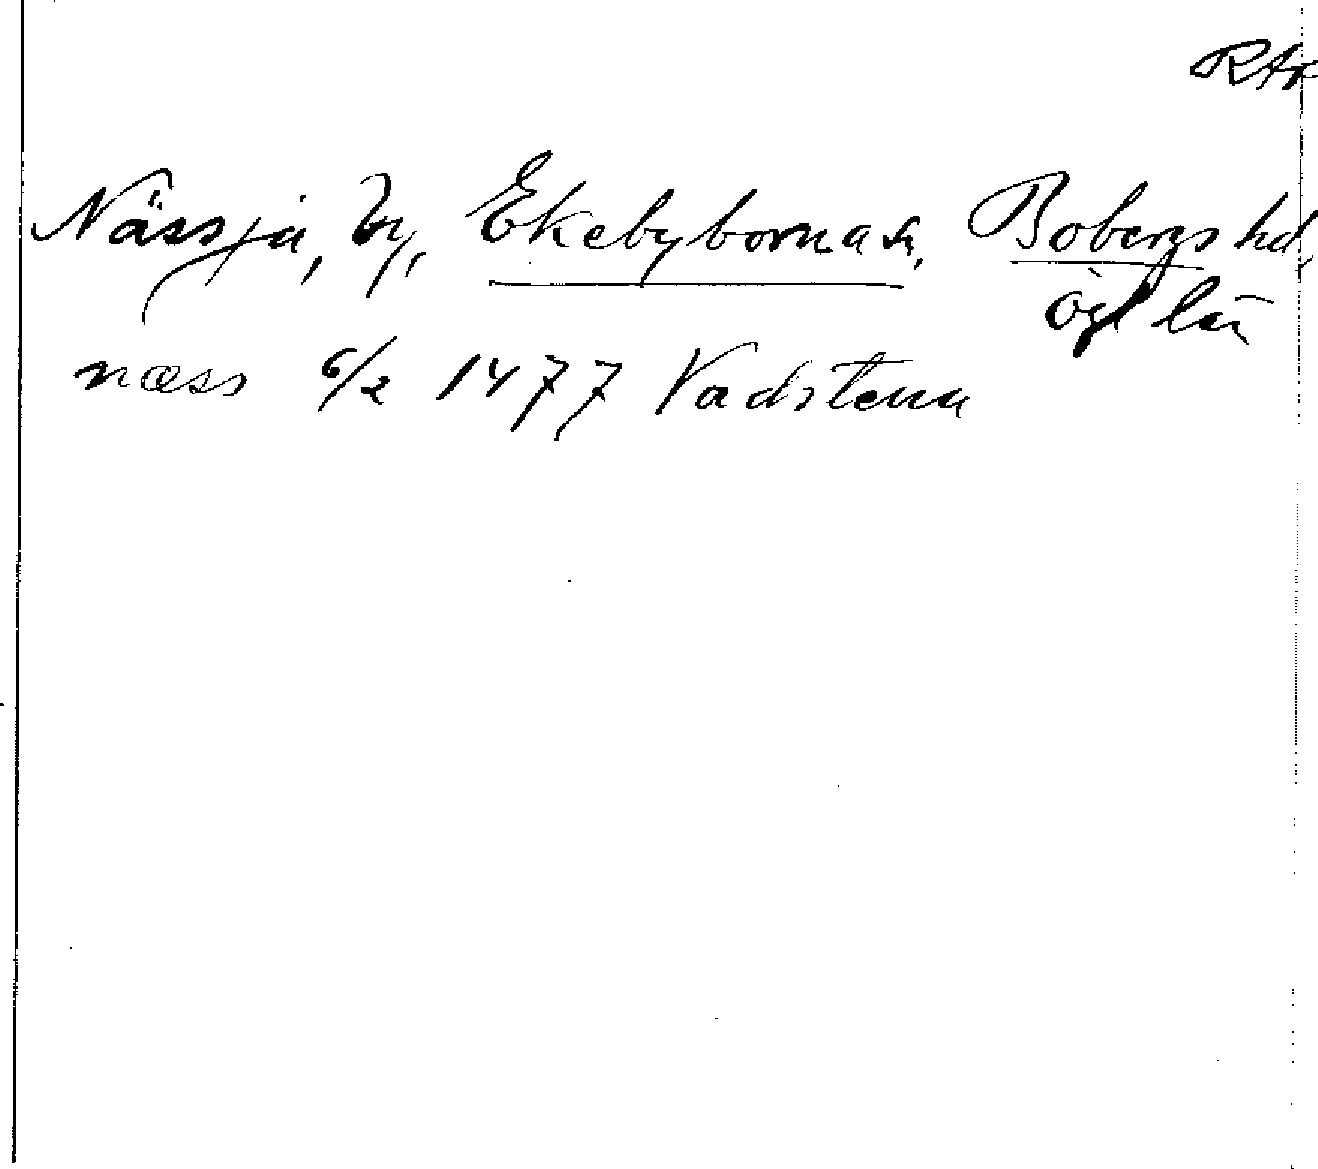 RAP
Nässja, by, Ekebyborna sn, Bobergs hd,
ögl län
næss 6/2 1477 Vadstena